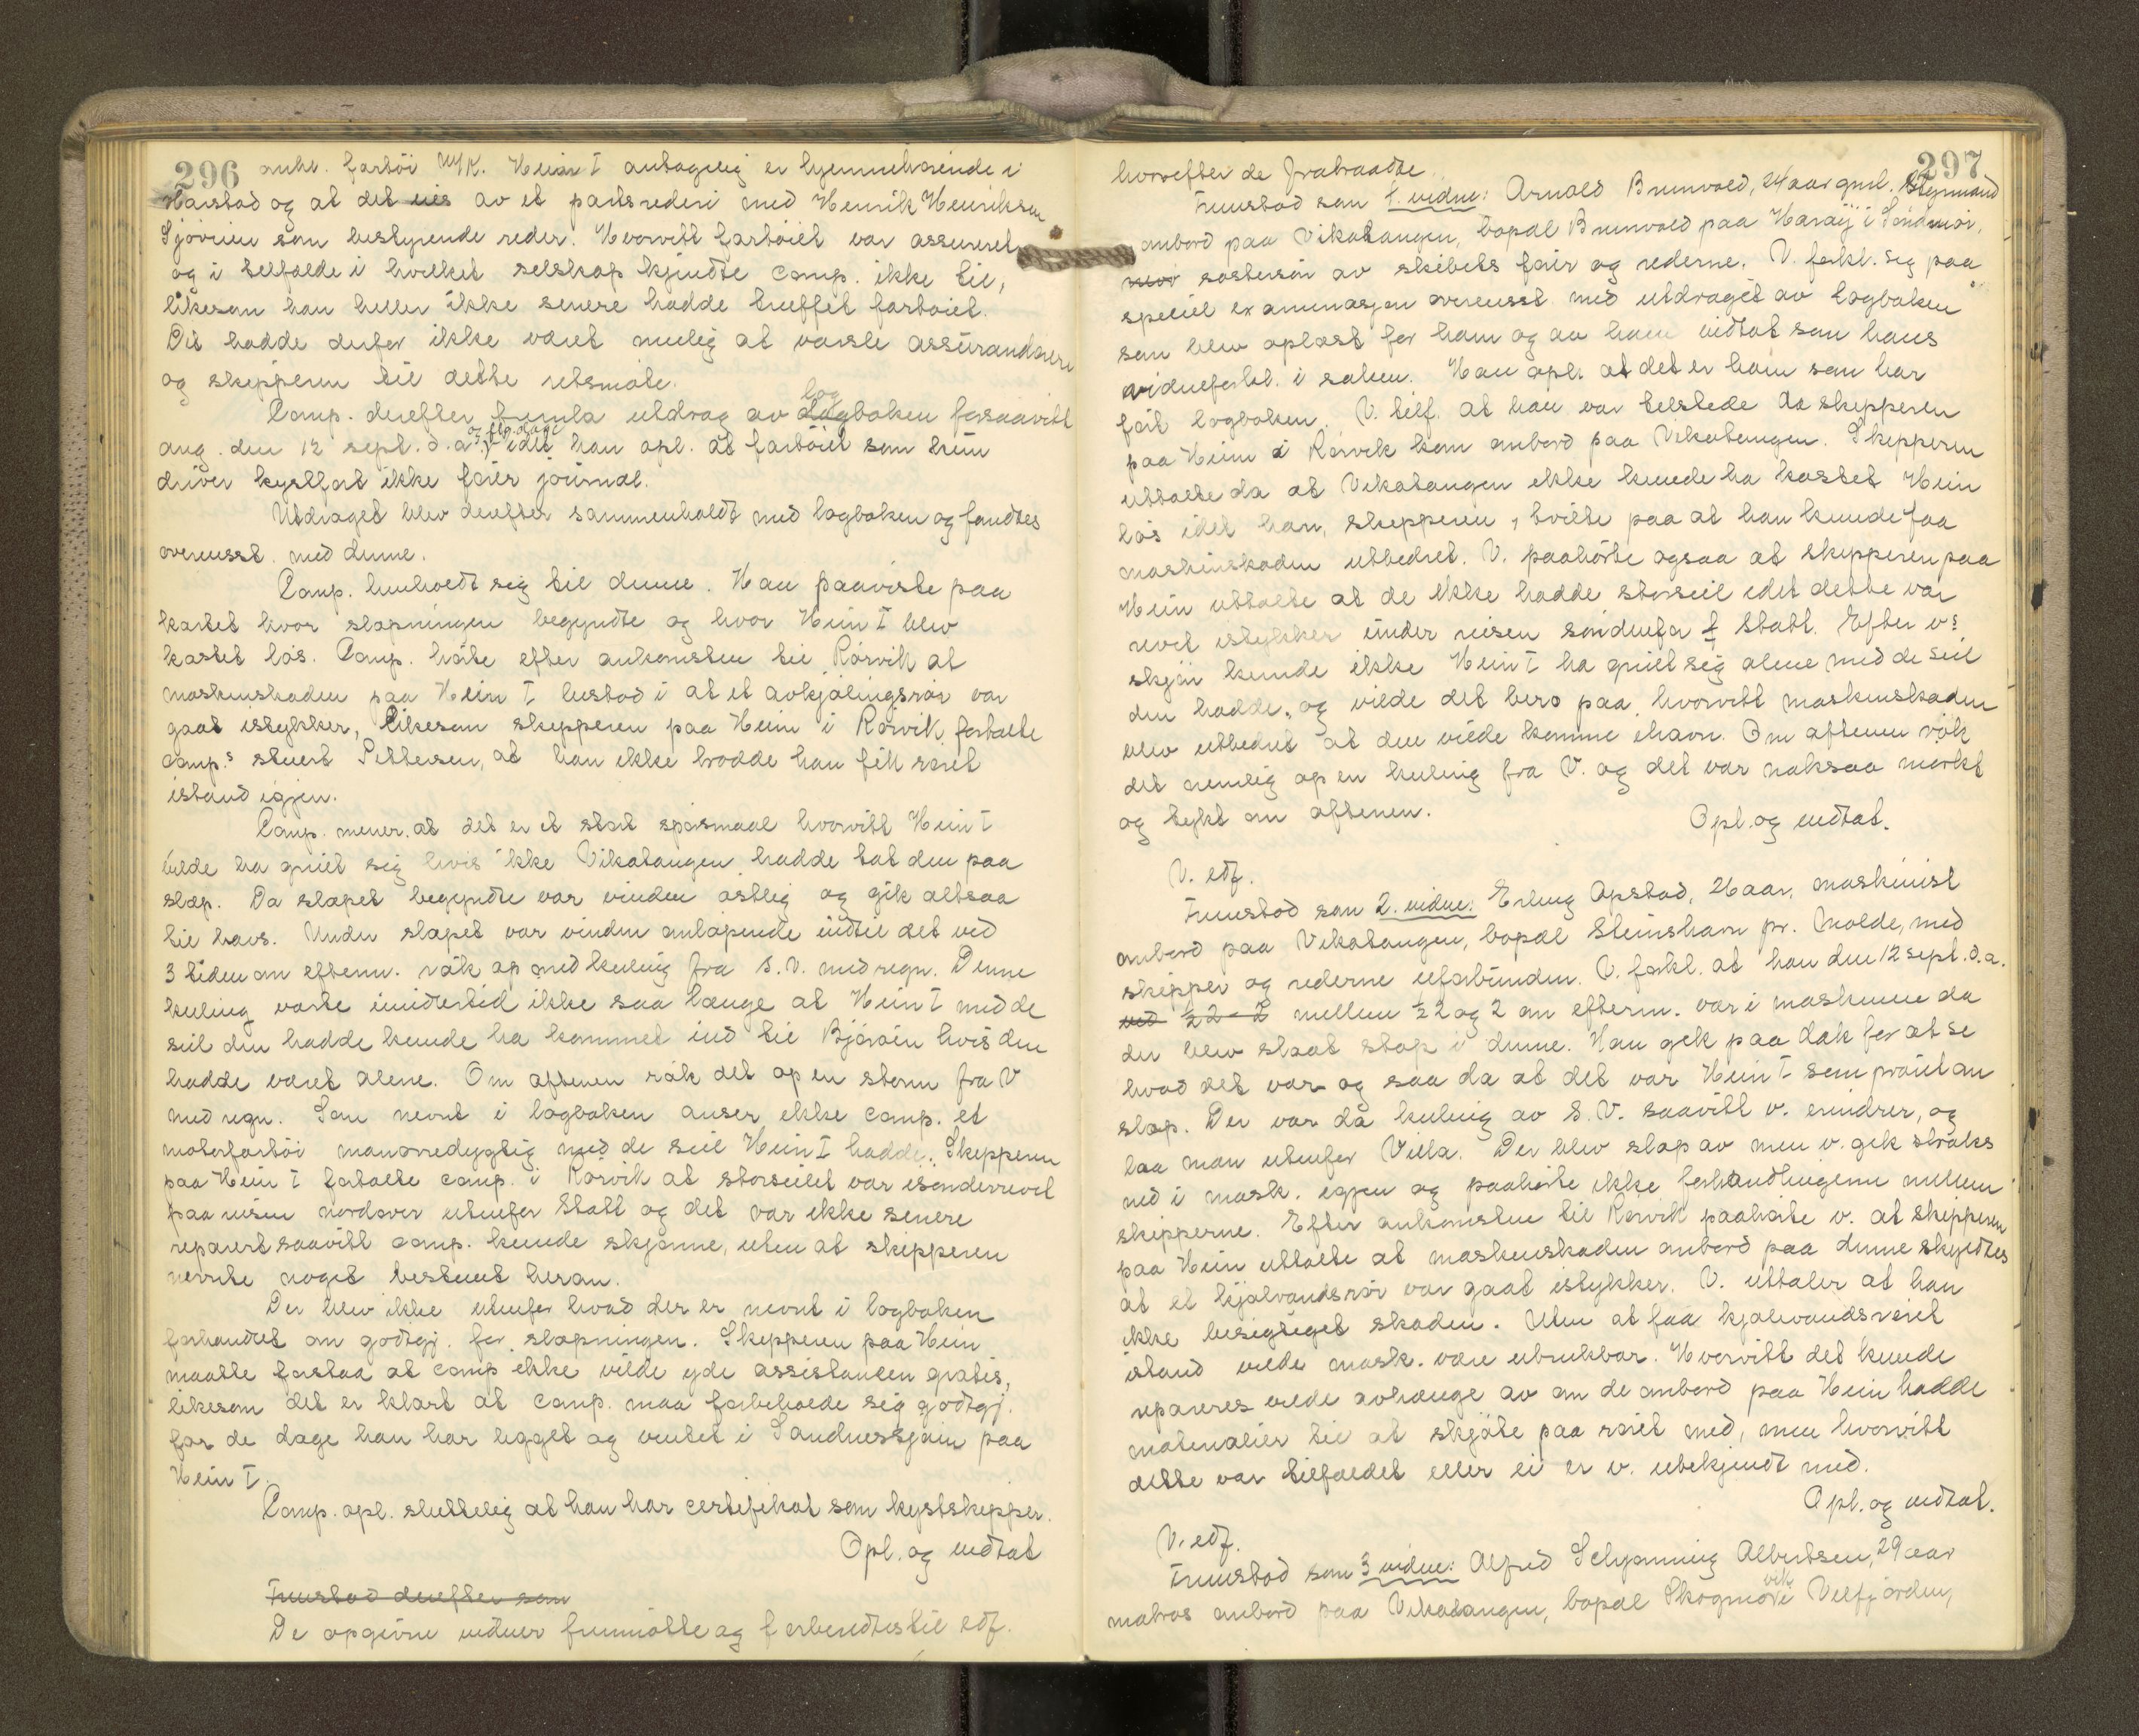 296 anht. fartöi M/K. Heim I antagelig er hjemmehörende i
Harstad og at det eies av et partsrederi med Henrik Henriksen
Sjöveien som bestyrende reder. Hvorvitt fartöiet var assurert
og i tilfælde i hvilket selskap kjendte comp. ikke til,
likesom han heller ikke senere hadde truffet fartöiet.
Det hadde derfor ikke været mulig at varsle assurandörer
og skipperen til dette retsmöte.
Comp. derefter fremla utdrag av logboken forsaavitt
ang. den 12 sept. d.a. og flg. dage idet han opl. at fartöiet som kun
driver kystfart ikke förer journal.
Utdraget blev derefter sammenholdt med logboken og fandtes
overensst. med denne.
Comp. henholdt sig til denne. Han paaviste paa
kartet hvor slæpningen begyndte og hvor Heim I blev
kastet lös. Comp. hörte efter ankomsten til Rörvik at
maskinskaden paa Heim I bestod i at et avkjölingsrör var
gaat istykker, likesom skipperen paa Heim i Rörvik fortalte
comp.s stuert Pettersen, at han ikke trodde han fik röret
istand igjen.
Comp. mener at det er et stort spörsmaal hvorvitt Heim I
vilde ha greiet sig hvis ikke Vikatangen hadde tat den paa
slæp. Da slæpet begyndte var vinden östlig og gik altsaa
til havs. Under slæpet var vinden omlöpende indtil det ved
3 tiden om efterm. rök op med kuling fra S.V. med regn. Denne
kuling varte imidlertid ikke saa længe at Heim I med de
seil den hadde kunde ha kommet ind til Björöen hvis den
hadde været alene. Om aftenen rök det op en storm fra V
med regn. Som nevnt i logboken anser ikke comp. et
motorfartöi manövredygtig med de seil Heim I hadde. Skipperen
paa Heim I fortalte comp. i Rörvik at storseilet var isönderrevet
paa reisen nordover utenfor Statt og det var ikke senere
reparert saavitt comp. kunde skjönne, uten at skipperen
nevnte noget bestemt herom.
Der blev ikke utenfor hvad der er nevnt i logboken
forhandlet om godtgj. for slæpningen. Skipperen paa Heim
maatte forstaa at comp ikke vilde yde assistancen gratis,
likesom det er klart at comp. maa forbeholde sig godtgj.
for de dage han har ligget og ventet i Sandnessjöen paa
Heim I.
Comp. opl. sluttelig at han har certifikat som kystskipper.
Opl. og vedtat
Fremstod derefter som
De opgivne vidner fremmötte og forberedtes til edf.
297
hvorefter de fratraadte.
Fremstod som 1. vidne: Arnold Brunvold, 24 aar gml. styrmand
ombord paa Vikatangen, bopæl Brunvold paa Haröy i Söndmör,
söstersön av skibets förer og rederne. V. forkl. sig paa
speciel examinasjon overensst. med utdraget av logboken
som blev oplæst for ham og av ham vedtat som hans
vidneforkl. i saken. Han opl. at det er ham som har
fört logboken. V. tilf. at han var tilstede da skipperen
paa Heim i Rörvik kom ombord paa Vikatangen. Skipperen
uttalte da at Vikatangen ikke kunde ha kastet Heim
lös idet han, skipperen, tvilte paa at han kunde faa
maskinskaden utbedret. V. paahörte ogsaa at skipperen paa
Heim uttalte at de ikke hadde storseil idet dette var
revet istykker under reisen söndenfor Statt. Efter v.s
skjön kunde ikke Heim I ha greiet sig alene med de seil
den hadde, og vilde det bero paa hvorvitt maskinskaden
blev utbedret at den vilde komme ihavn. Om aftenen rök
det nemlig op en kuling fra V. og det var noksaa mörkt
og tykt om aftenen.
Opl. og vedtat.
V. edf.
Fremstod som 2. vidne: Erling Opstad, 26 aar, maskinist
ombord paa Vikatangen, bopæl Steinshavn pr. Molde, med
skipper og rederne uforbunden. V. forkl. at han den 12 sept. d.a.
ved ½2-2 mellem ½2 og 2 om efterm. var i maskinen da
der blev slaat stop i denne. Han gik paa dæk for at se
hvad det var og saa da at det var Heim I som praiet om
slæp. Der var da kuling av S.V. saavitt v. erindrer, og
laa man utenfor Villa. Der blev slæp av men v. gik straks
ned i mask. igjen og paahörte ikke forhandlingerne mellem
skipperne. Efter ankomsten til Rörvik paahörte v. at skipperen
paa Heim uttalte at maskinskaden ombord paa denne skyldtes
at et kjölevandsrör var gaat istykker. V. uttaler at han
ikke besigtiget skaden. Uten at faa kjölevandsröret
istand vilde mask. være ubrukbar. Hvorvitt det kunde
repareres vilde avhænge av om de ombord paa Heim hadde
materialier til at skjöte paa röret med, men hvorvitt
dette var tilfældet eller ei er v. ubekjendt med.
Opl. og vedtat.
V. edf.
Fremstod som 3 vidne: Alfred Schjönning Albertsen, 29 aar
matros ombord paa Vikatangen, bopæl Skogmo vik Velfjorden,